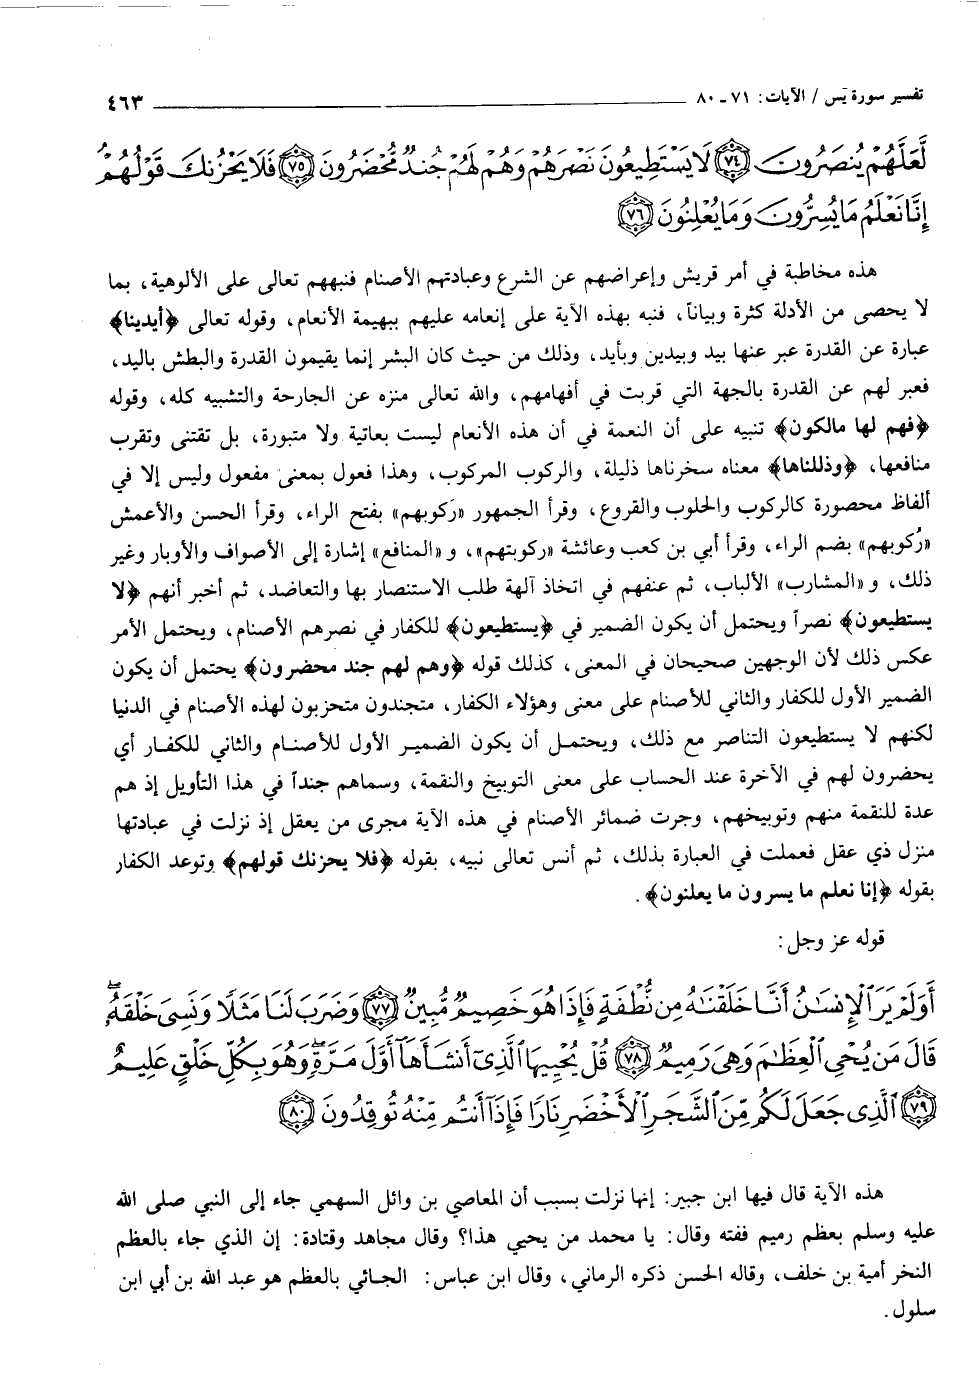 تفسير سورة يٓس / الآيات: ٧١ ـ ٨٠ ٤٦٣
لَّعَلَّهُمْ يُنصَرُونَ ﴿٧٤﴾ لَا يَسْتَطِيعُونَ نَصْرَهُمْ وَهُمْ لَهُمْ جُندٌ مُّحْضَرُونَ ﴿٧٥﴾ فَلَا يَحْزُنكَ قَوْلُهُمْ
إِنَّا نَعْلَمُ مَا يُسِرُّونَ وَمَا يُعْلِنُونَ ﴿٧٦﴾
هذه مخاطبة في أمر قريش وإعراضهم عن الشرع وعبادتهم الأصنام فنبههم تعالى على الألوهية، بما
لا يحصى من الأدلة كثرة وبياناً، فنبه بهذه الآية على إنعامه عليهم ببهيمة الأنعام، وقوله تعالى ﴿أيدينا﴾
عبارة عن القدرة عبر عنها بيد وبيدين وبأيد، وذلك من حيث كان البشر إنما يقيمون القدرة والبطش باليد،
فعبر لهم عن القدرة بالجهة التي قربت في أفهامهم، والله تعالى منزه عن الجارحة والتشبيه كله، وقوله
﴿فهم لها مالكون﴾ تنبيه على أن النعمة في أن هذه الأنعام ليست بعاتية ولا متبورة، بل تقتنى وتقرب
منافعها، ﴿وذللناها﴾ معناه سخرناها ذليلة، والركوب المركوب، وهذا فعول بمعنى مفعول وليس إلا في
ألفاظ محصورة كالركوب والحلوب والقروع، وقرأ الجمهور «رَكوبهم» بفتح الراء، وقرأ الحسن والأعمش
«رُكوبهم» بضم الراء، وقرأ أبي بن كعب وعائشة «ركوبتهم»، و «المنافع» إشارة إلى الأصواف والأوبار وغير
ذلك، و «المشارب» الألباب، ثم عنفهم في اتخاذ آلهة طلب الاستنصار بها والتعاضد، ثم أخبر أنهم ﴿لا
يستطيعون﴾ نصراً ويحتمل أن يكون الضمير في ﴿يستطيعون﴾ للكفار في نصرهم الأصنام، ويحتمل الأمر
عكس ذلك لأن الوجهين صحيحان في المعنى، كذلك قوله ﴿وهم لهم جند محضرون﴾ يحتمل أن يكون
الضمير الأول للكفار والثاني للأصنام على معنى وهؤلاء الكفار، متجندون متحزبون لهذه الأصنام في الدنيا
لكنهم لا يستطيعون التناصر مع ذلك، ويحتمل أن يكون الضمير الأول للأصنام والثاني للكفار أي
يحضرون لهم في الآخرة عند الحساب على معنى التوبيخ والنقمة، وسماهم جنداً في هذا التأويل إذ هم
عدة للنقمة منهم وتوبيخهم، وجرت ضمائر الأصنام في هذه الآية مجرى من يعقل إذ نزلت في عبادتها
منزل ذي عقل فعملت في العبارة بذلك، ثم أنس تعالى نبيه، بقوله ﴿فلا يحزنك قولهم﴾ وتوعد الكفار
بقوله ﴿إنا نعلم ما يسرون ما يعلنون﴾.
قوله عز وجل:
أَوَلَمْ يَرَ ٱلْإِنسَٰنُ أَنَّا خَلَقْنَٰهُ مِن نُّطْفَةٍ فَإِذَا هُوَ خَصِيمٌ مُّبِينٌ ﴿٧٧﴾ وَضَرَبَ لَنَا مَثَلًا وَنَسِىَ خَلْقَهُۥ ۖ
قَالَ مَن يُحْىِ ٱلْعِظَٰمَ وَهِىَ رَمِيمٌ ﴿٧٨﴾ قُلْ يُحْيِيهَا ٱلَّذِىٓ أَنشَأَهَآ أَوَّلَ مَرَّةٍ ۖ وَهُوَ بِكُلِّ خَلْقٍ عَلِيمٌ
﴿٧٩﴾ ٱلَّذِى جَعَلَ لَكُم مِّنَ ٱلشَّجَرِ ٱلْأَخْضَرِ نَارًا فَإِذَآ أَنتُم مِّنْهُ تُوقِدُونَ ﴿٨٠﴾
هذه الآية قال فيها ابن جبير: إنها نزلت بسبب أن المعاصي بن وائل السهمي جاء إلى النبي صلى الله
عليه وسلم بعظم رميم ففته وقال: يا محمد من يحيي هذا؟ وقال مجاهد وقتادة: إن الذي جاء بالعظم
النخر أمية بن خلف، وقاله الحسن ذكره الرماني، وقال ابن عباس: الجائي بالعظم هو عبد الله بن أبي ابن
سلول.